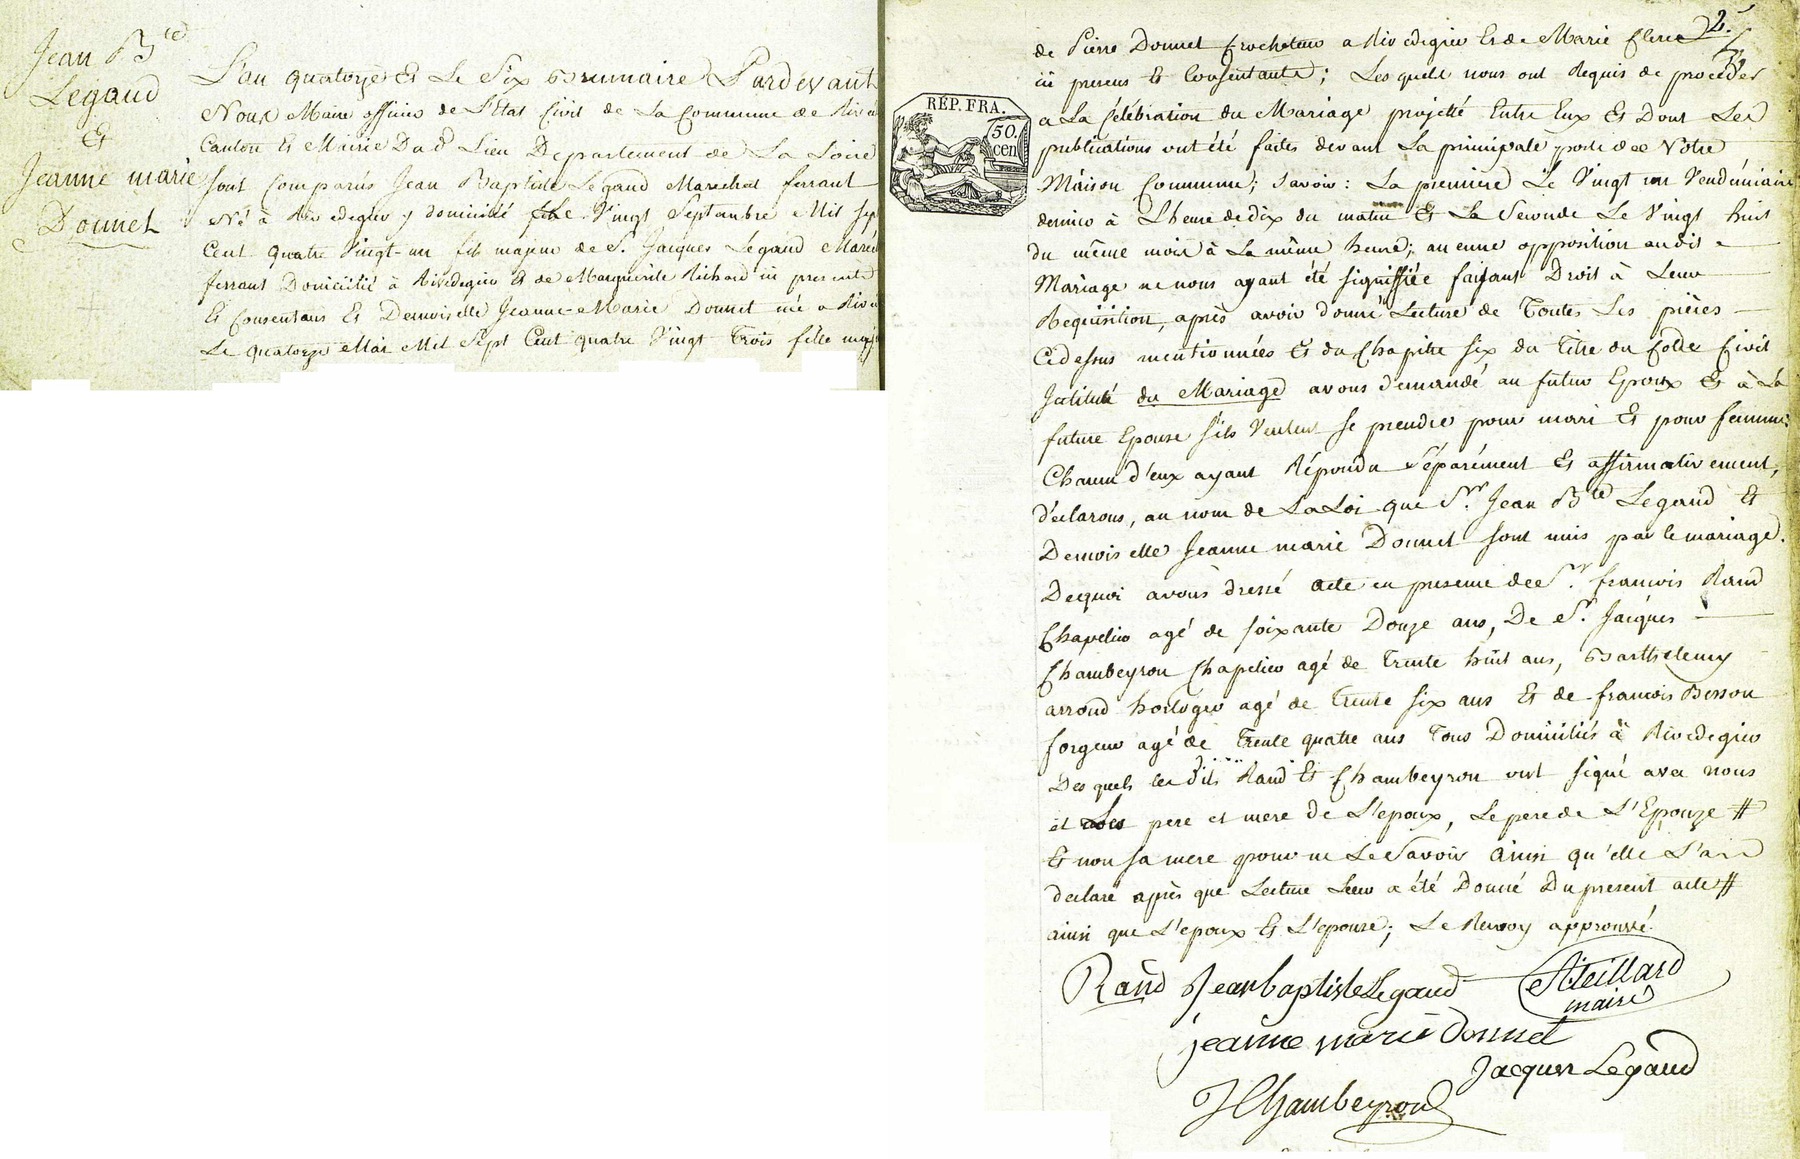 Jean Bte
Legaud
Et
Jeanne marie
Donnet
L'an quatorze Et Le Six Brumaire Pardevant
Nous Maire officier de L'Etat Civil de La Commune de Rive
Canton Et Mairie Dud. Lieu Departement de La Loire
sont Comparus Jean Baptiste Legaud Marechal ferrant
Né à Rivedegier y domicilié Le Vingt Septembre Mil Sept
Cent quatre Vingt-un fils majeur de S. Jacques Legaud Marec
ferrant Domicilié à Rivedegier Et de Marguerite Richard ici presents
Et Consentans Et Demoiselle Jeanne-Marie Donnet née a Rive
Le quatorze Mai Mil Sept Cent quatre Vingt Trois fille maj
2.
de Pierre Donnet Crocheteur a Rivedegier Et de Marie
ici presens Et Consentants; Les quels nous ont Requis de proceder
a La Célébration du Mariage projetté Entre Eux Et Dont Les
publications ont été faites devant La principale porte de Notre
Maison Commune; Savoir: La premiere Le Vingt un Vendémiaire
dernier à L'heure de Dix du matin Et La Seconde Le Vingt huit
du même mois à La même heure; aucune opposition audit
Mariage ne nous ayant été signiffiée faisant Droit à Leur
Requisition, après avoir donné Lecture de Toutes Les pièces
Cidessus mentionnées Et du Chapitre six du Titre du Code Civil
Intitulé du Mariage avons demandé au futur Epoux Et à La
future Epouse s'ils Veulent se prendre pour mari Et pour femme;
Chacun d'eux ayant Répondu Séparément Et affirmativement,
déclarons, au nom de La Loi que Sr. Jean Bte Legaud Et
Demoiselle Jeanne marie Donnet sont unis par le mariage.
Dequoi avons dressé acte en presence de Sr. francois Rand
Chapelier agé de soixante Douze ans, De Sr. Jacques
Chambeyron Chapelier agé de Trente huit ans, Barthelemy
arnoud horloger agé de Trente six ans Et de francois Besson
forgeur agé de Trente quatre ans Tous Domiciliés à Rivedegier
Des quels les dits Rand Et Chambeyron ont signé avec nous
et Les pere et mere de L'epoux, Le pere de L'Epouze #
Et non sa mere pour ne Le Savoir ainsi qu'elle L'a
declaré après que Lecture Leur a été Donné Du present acte #
ainsi que L'epoux Et L'epouse; Le Renvoy approuvé.
Rand Jean baptiste Legaud Steillard
maire
jeanne marie donnet
Jacques Legaud
J Chambeyron
RÉP. FRA.
50.
cen